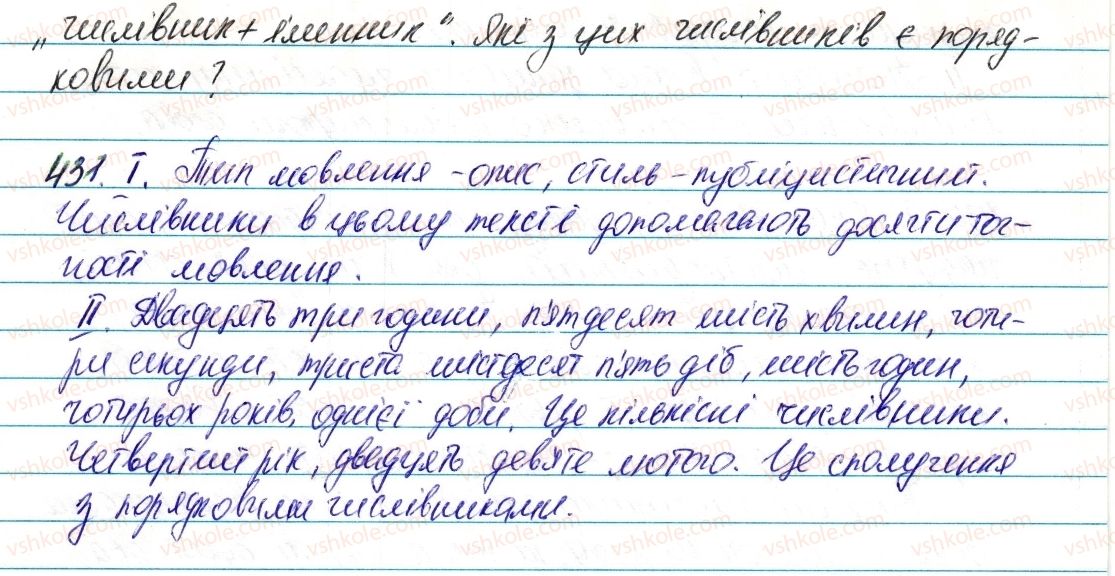 „числівник + іменник“. Які з цих числівників є поряд-
ковими?
431. І. Тип мовлення - опис, стиль - публіцистичний.
Числівники в цьому тексті допомагають досягти точ-
ності мовлення.
ІІ. Двадцять три години, п'ятдесят шість хвилин, чоти-
ри секунди, триста шістдесят п'ять діб, шість годин,
чотирьох років, однієї доби. Це кількісні числівники.
Четвертий рік, двадцять дев'яте лютого. Це сполучення
з порядковими числівниками.